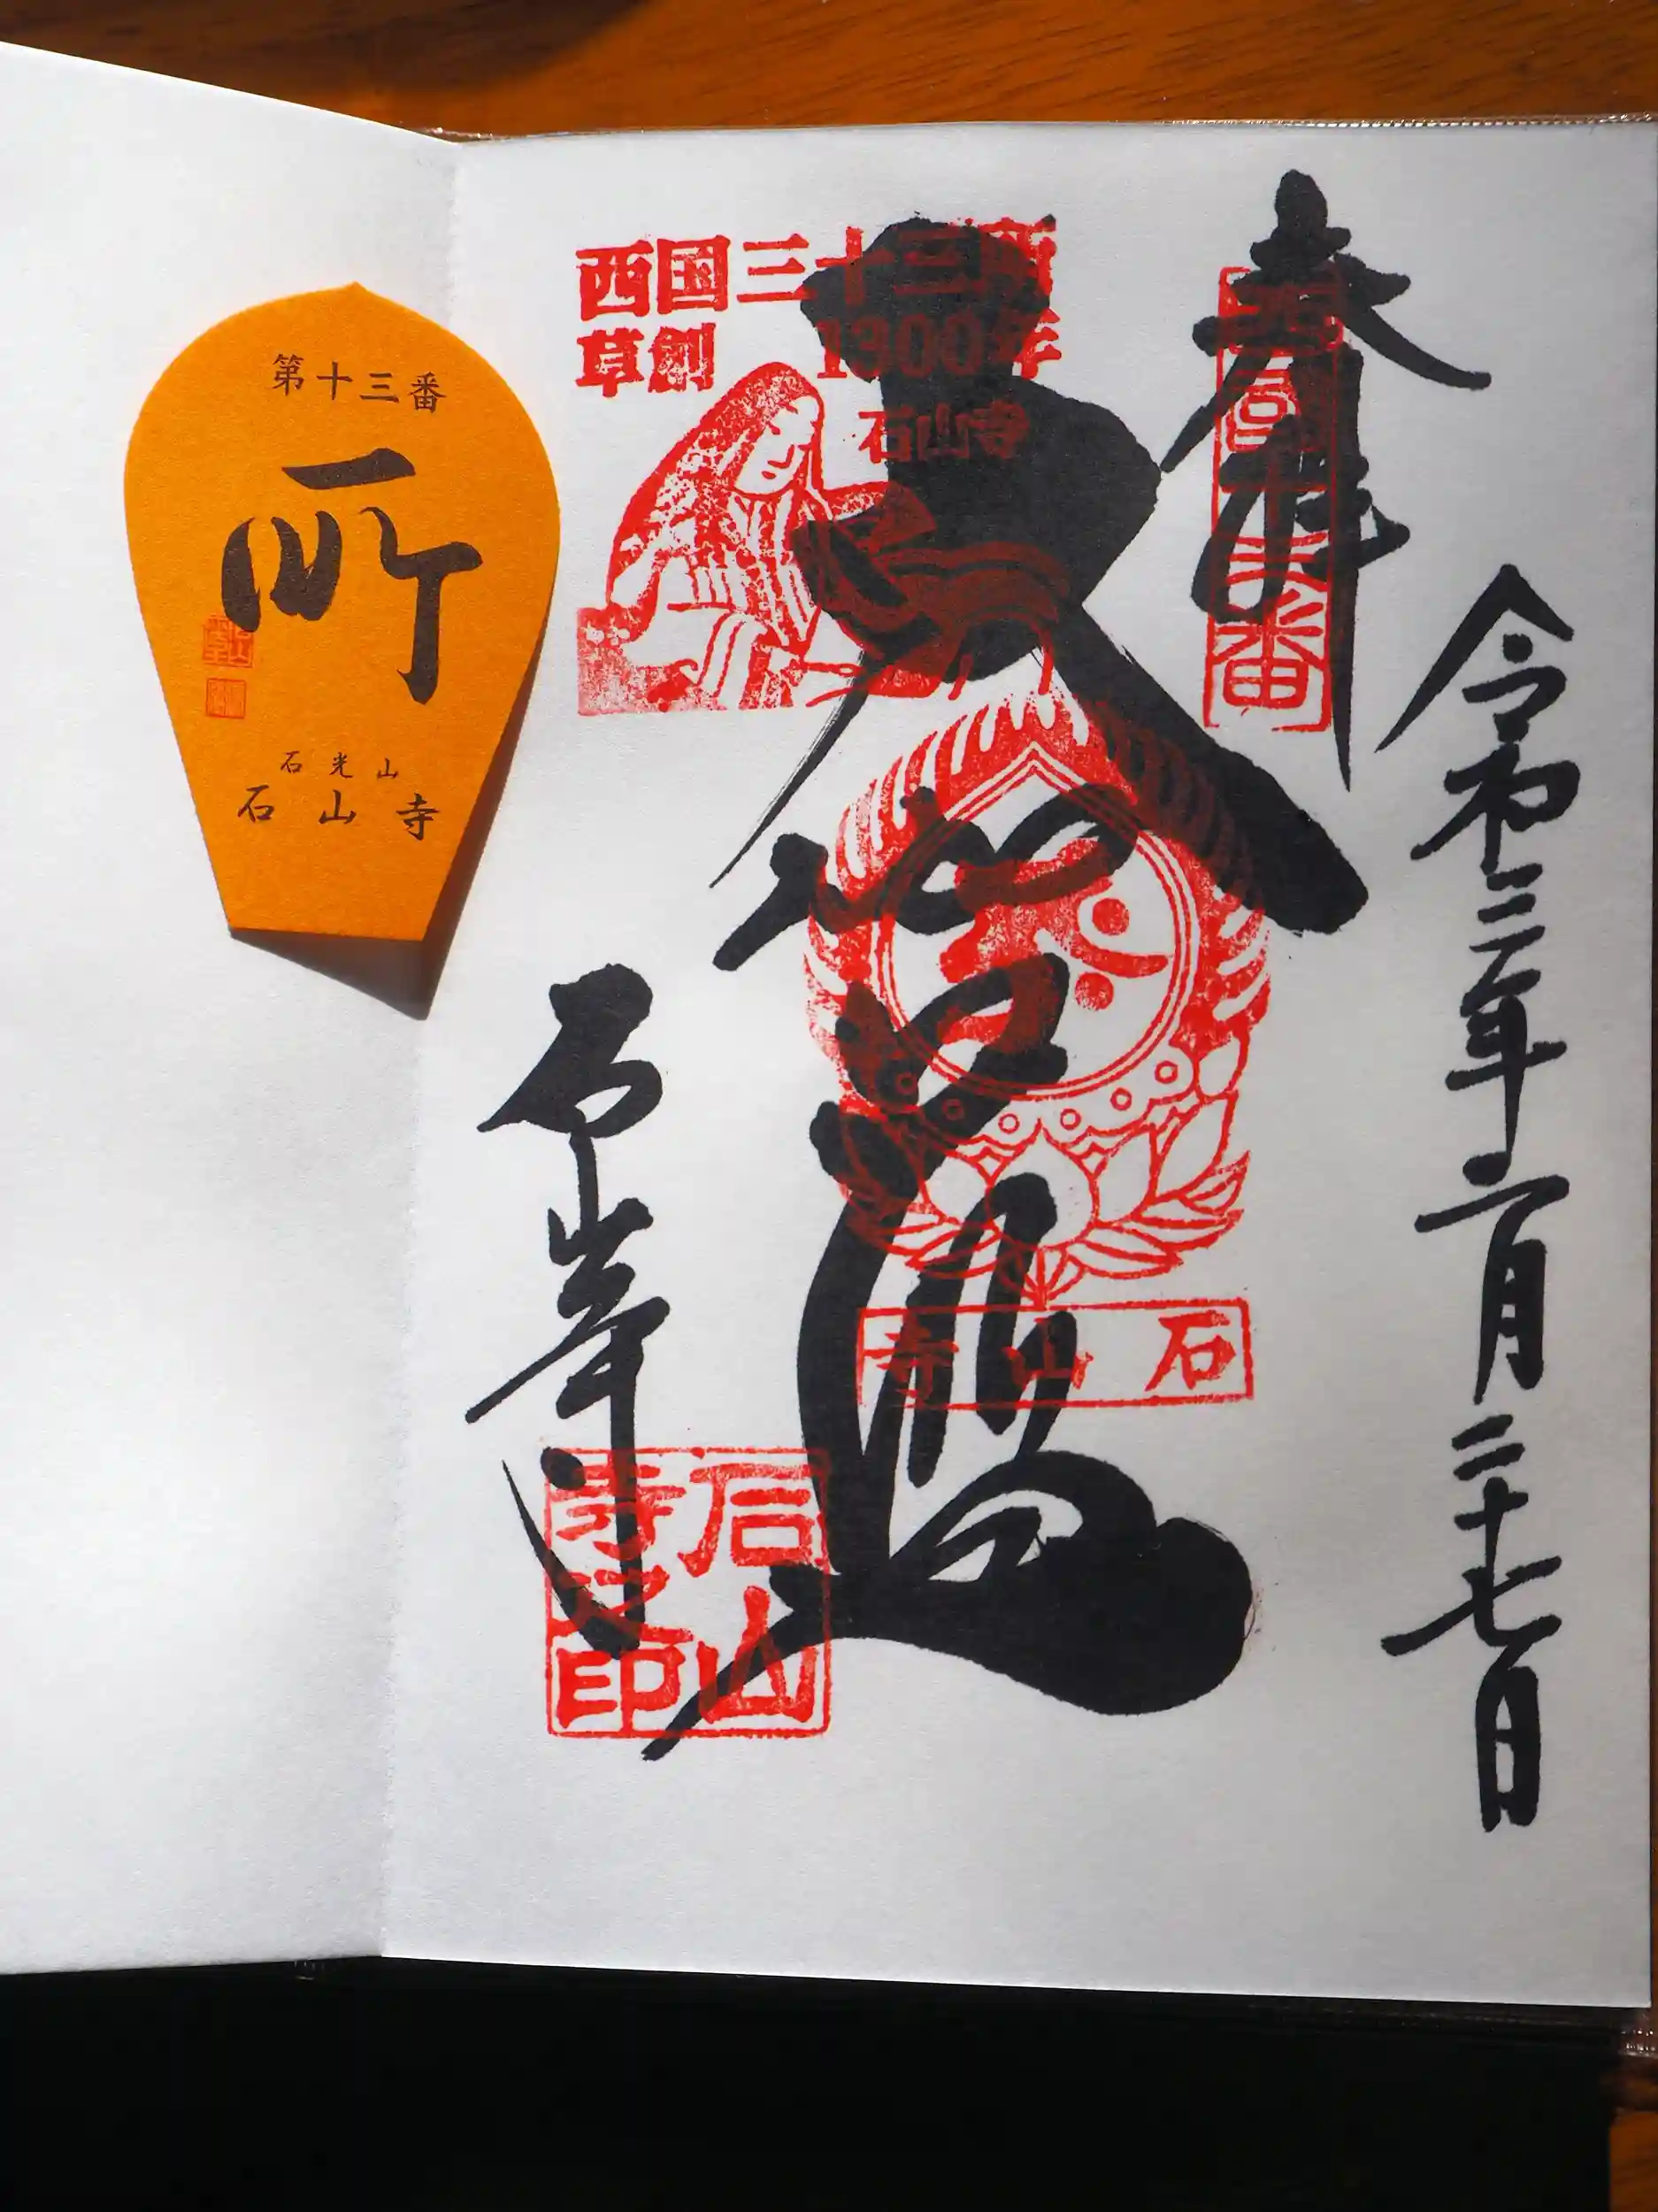 令和三年二月二十七日
奉拝
西国十三番
大伽藍
西国三十三所
草創 1300年
石山寺
石山寺
石山寺
石山寺之印
第十三番
所
石光山
石山寺